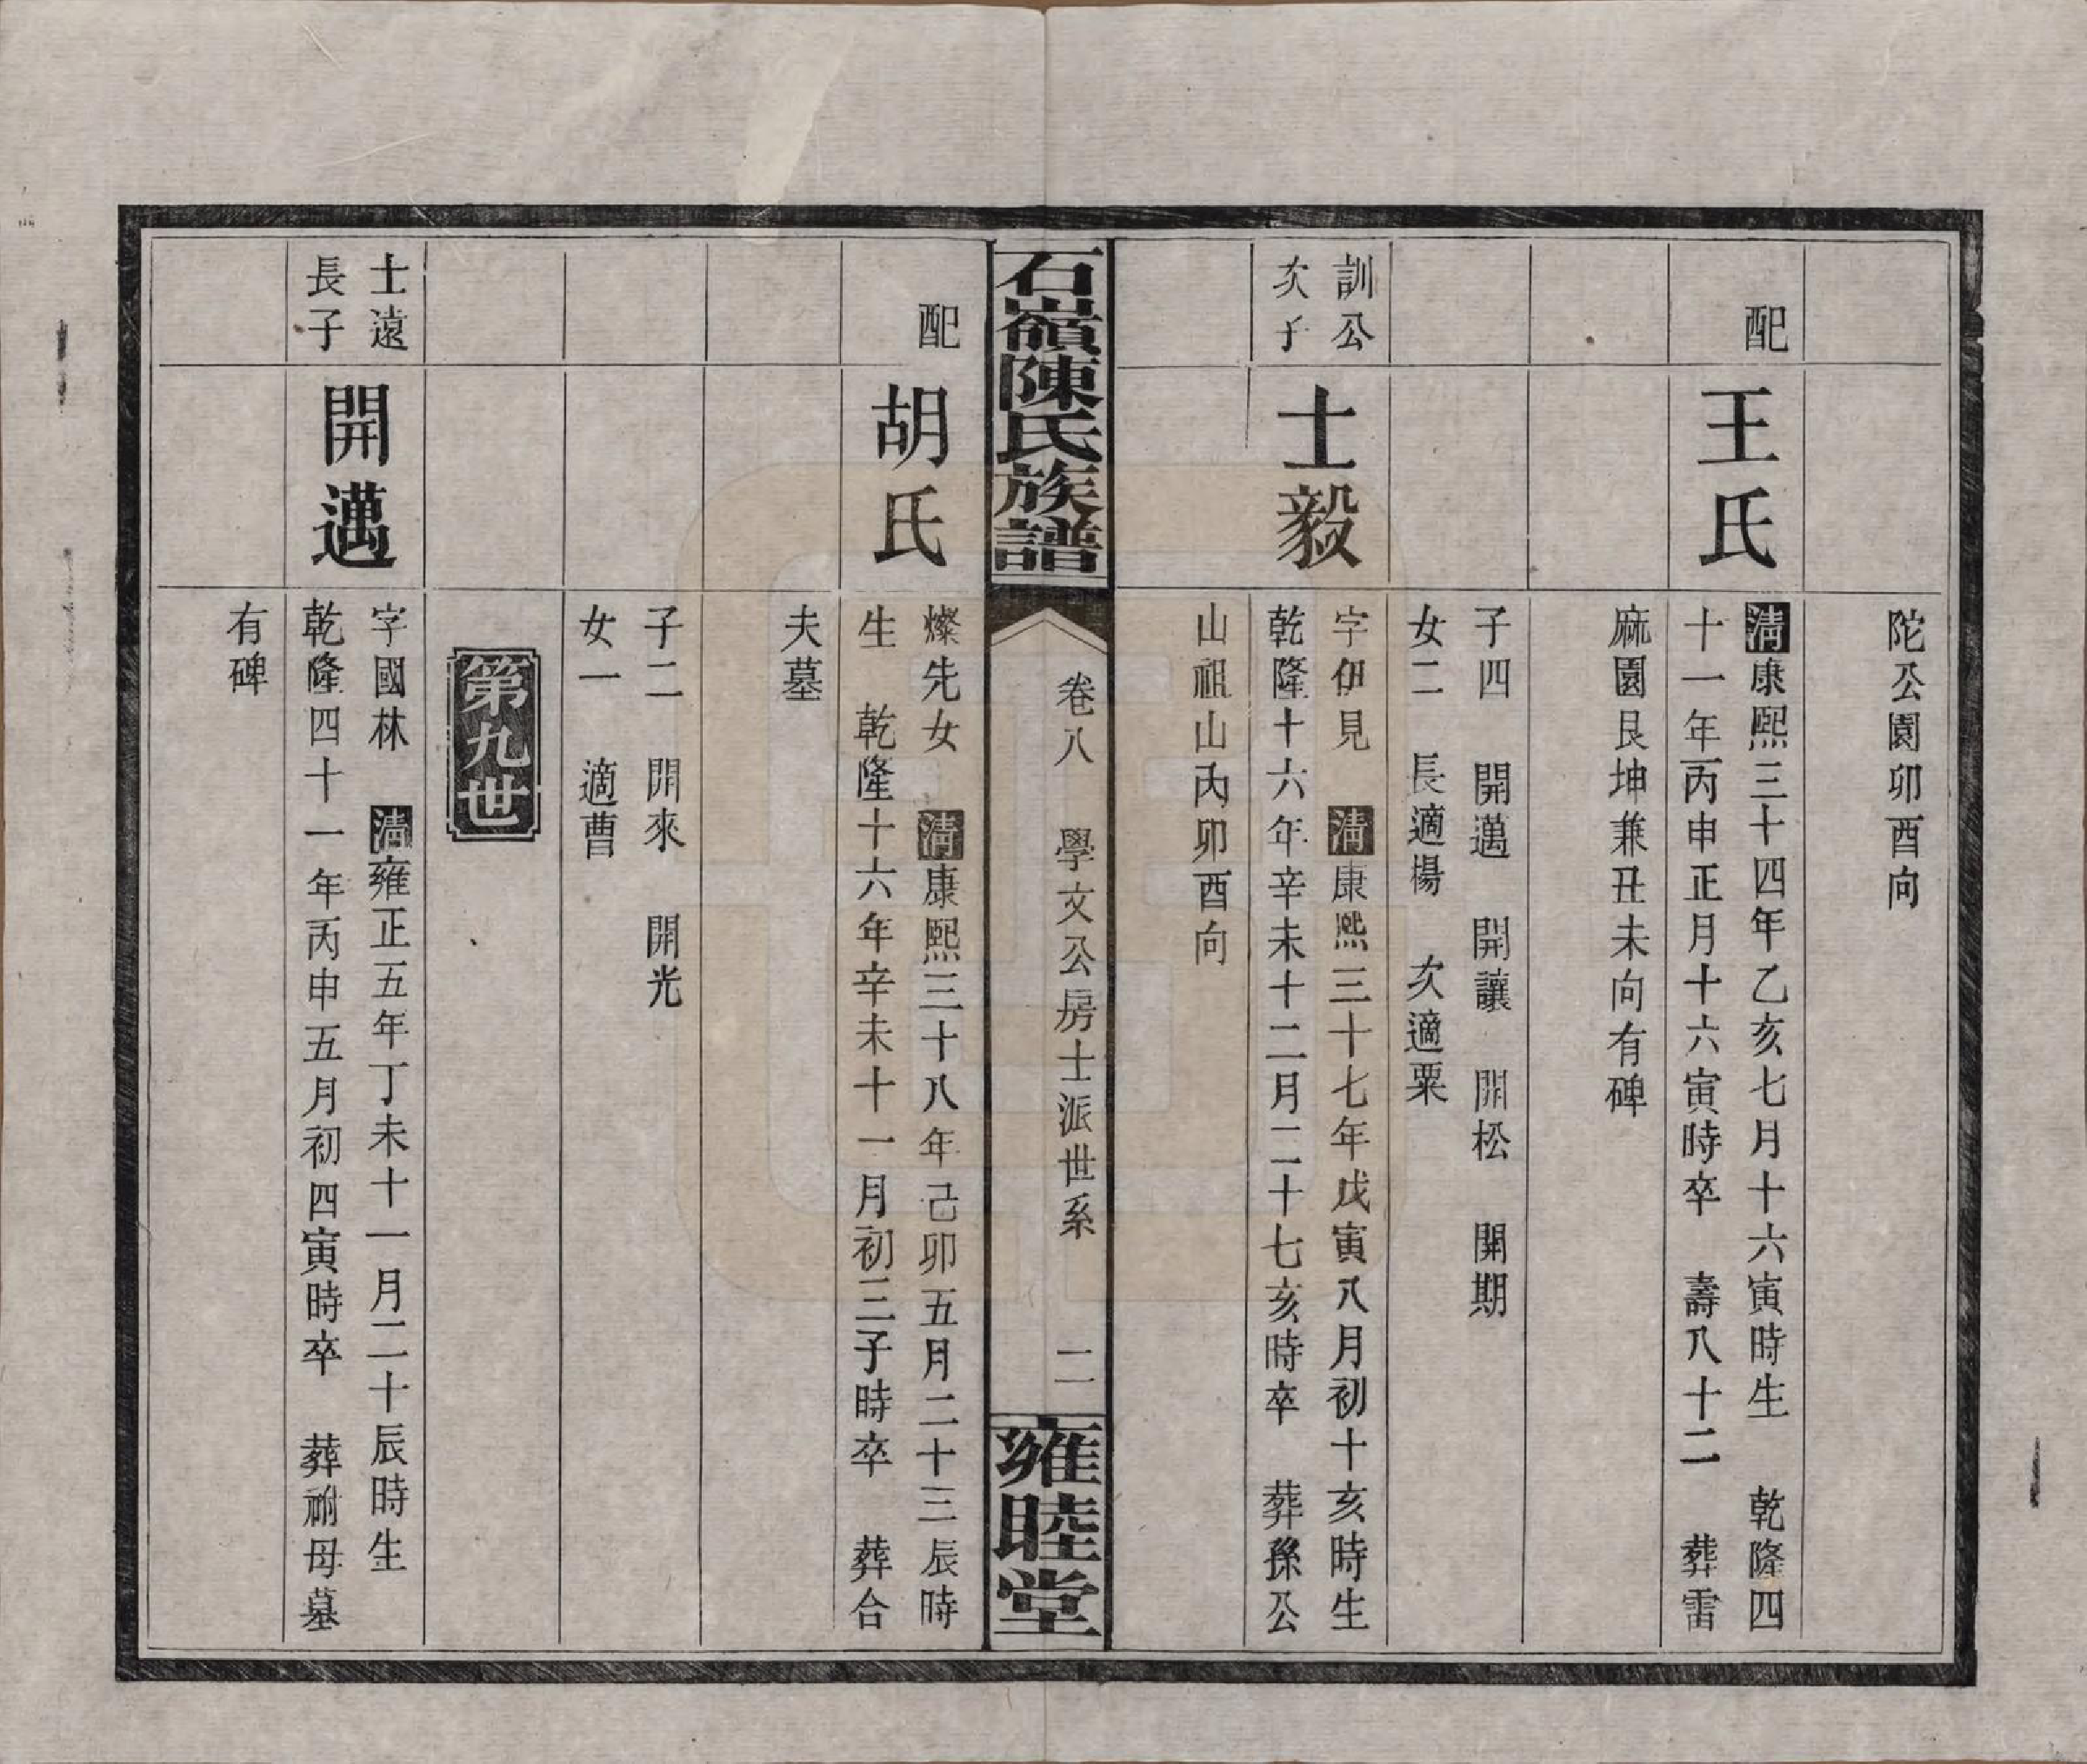 陀公園卯酉向
配
王氏
清康熙三十四年乙亥七月十六寅時生 乾隆四
十一年丙申正月十六寅時卒 壽八十二 葬雷
麻園艮坤兼丑未向有碑
子四 開邁 開讓 開松 開期
女二 長適楊 次適粟
訓公
次子
士毅
字伊見 清康熙三十七年戊寅八月初十亥時生
乾隆十六年辛未十二月二十七亥時卒 葬孫公
山祖山內卯酉向
石嶺陳氏族譜
卷八 學文公房士派世系 二
雍睦堂
配
胡氏
燦先女 清康熙三十八年己卯五月二十三辰時
生 乾隆十六年辛未十一月初三子時卒 葬合
夫墓
子二 開來 開光
女一 適曹
第九世
士遠
長子
開邁
字國林 清雍正五年丁未十一月二十辰時生
乾隆四十一年丙申五月初四寅時卒 葬祔母墓
有碑